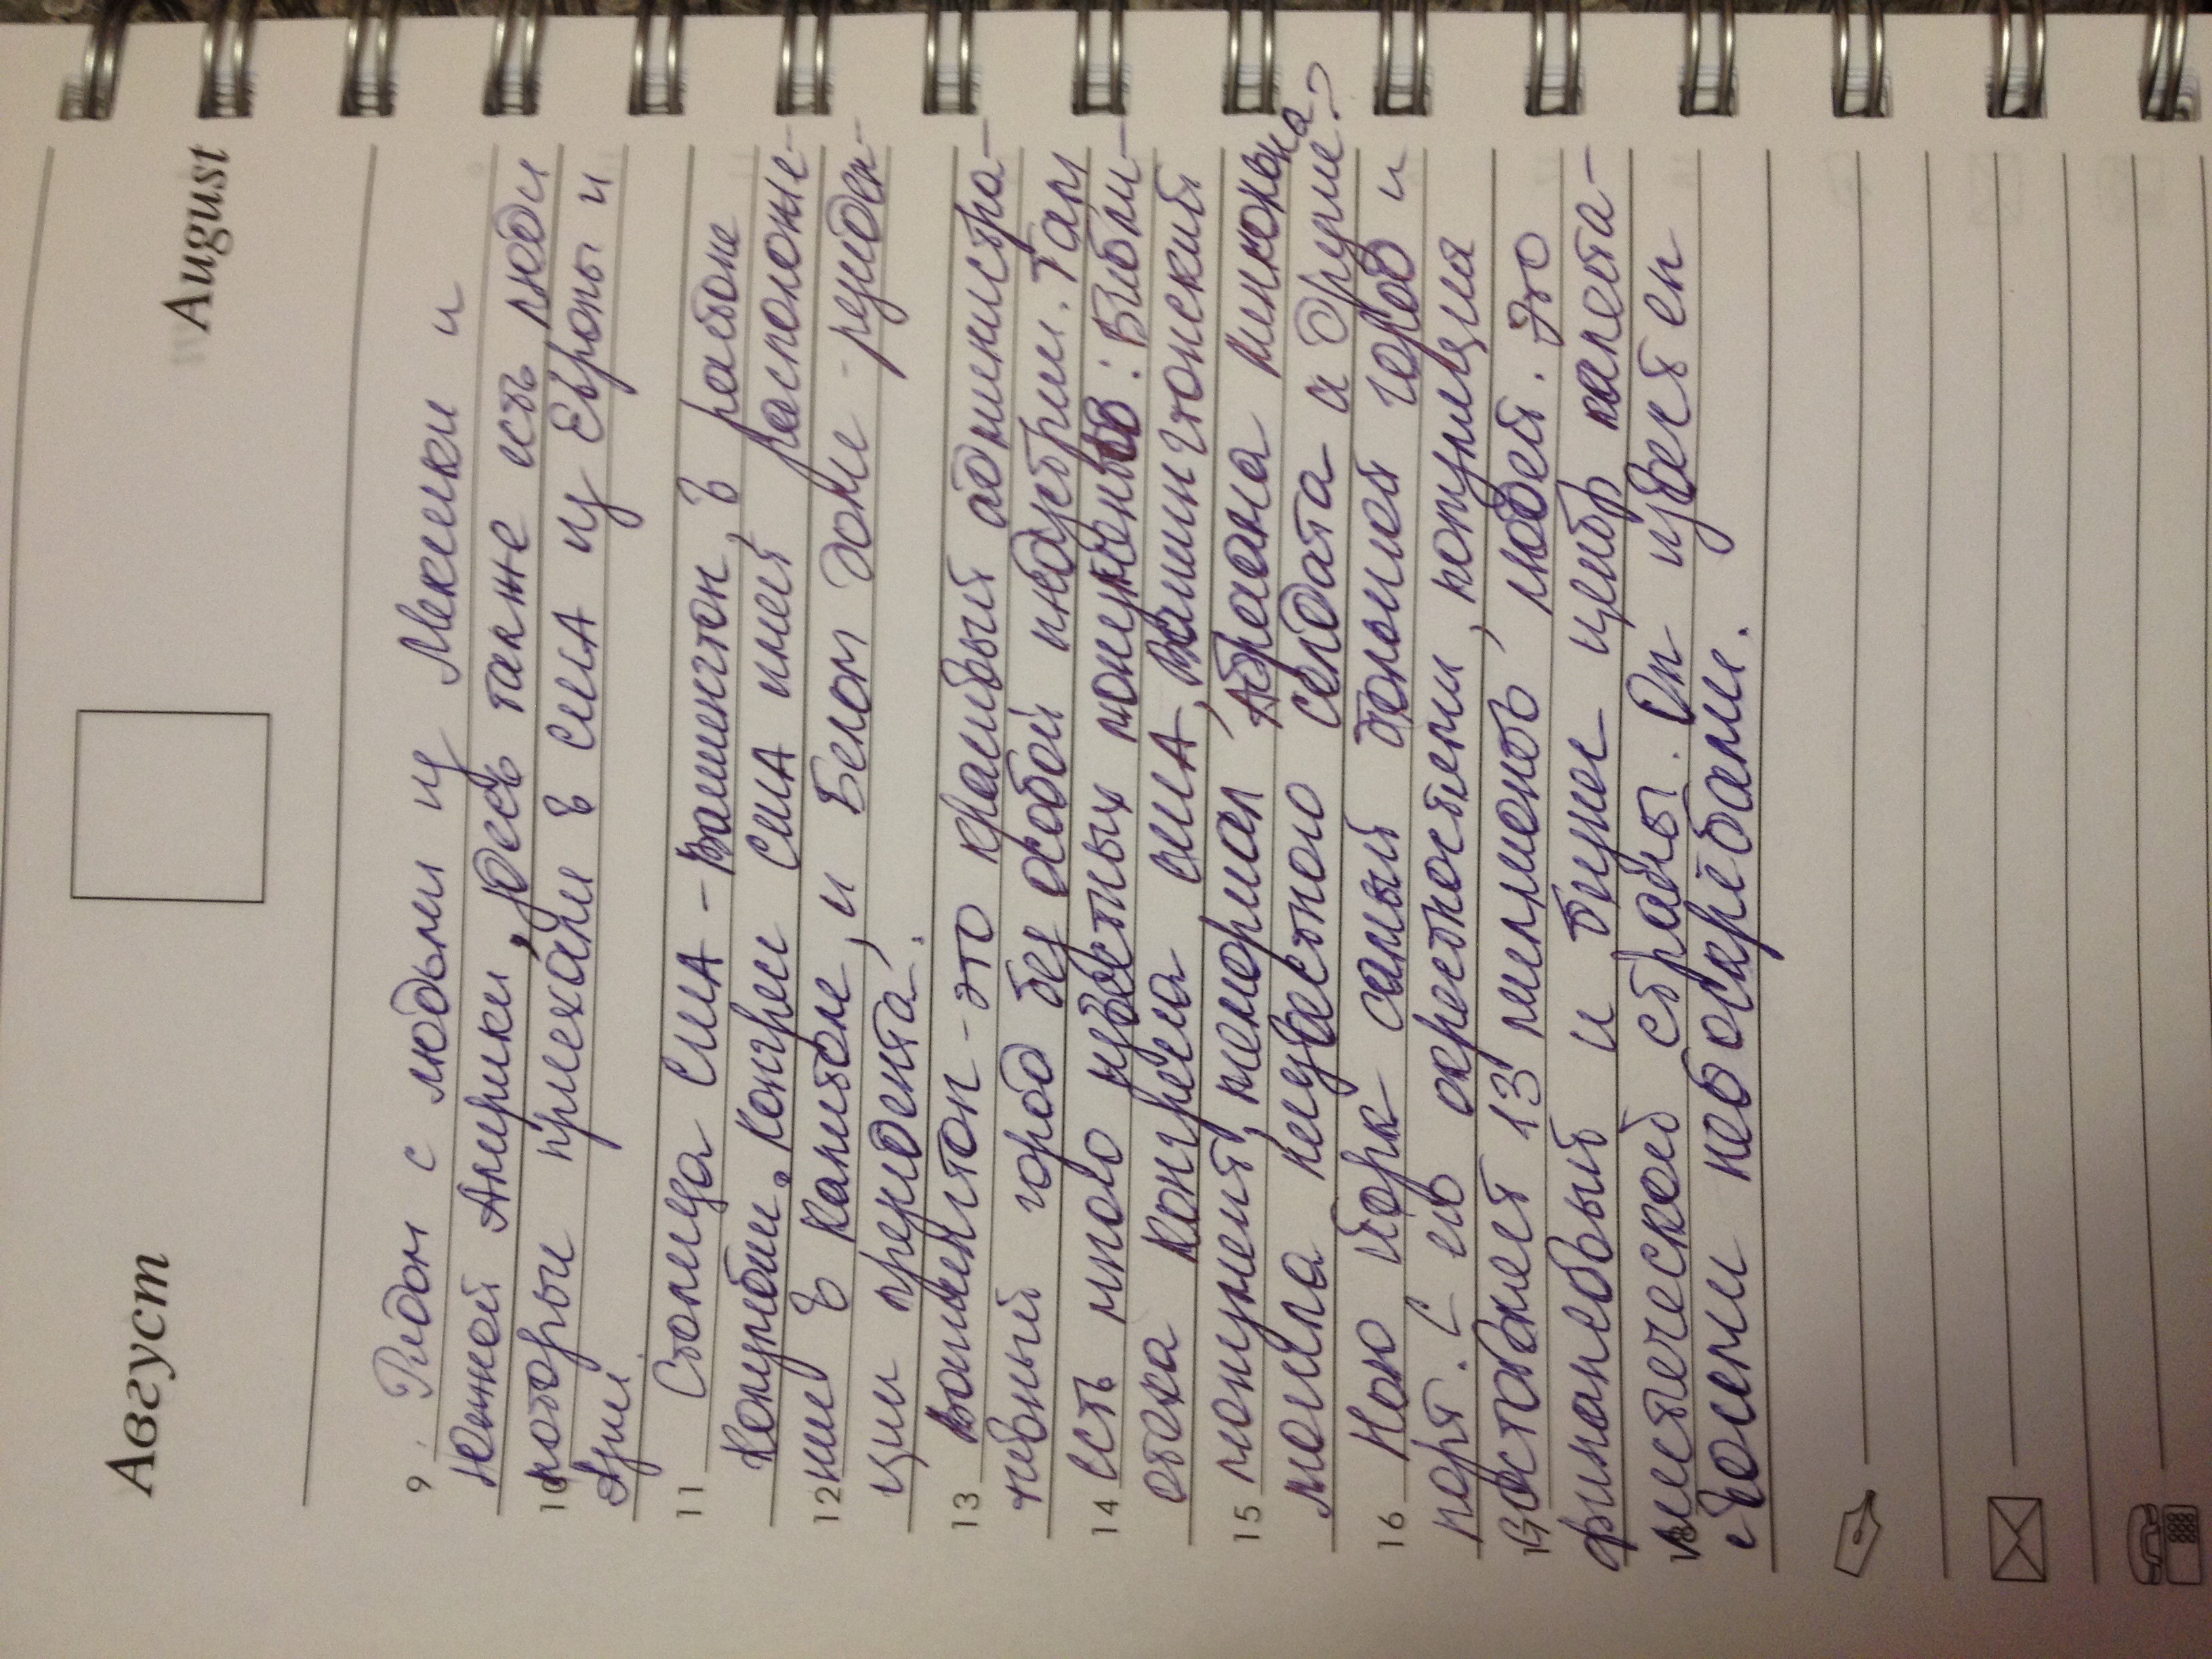 Август
August
9 Рядом с людьми из Мексики и
Южной Америки, здесь также есть люди
10 которые приехали в США из Европы и
Азии.
11 Столица США - Вашингтон, в районе
Колумбии. Конгресс США имеет расположе-
12 ние в Капитоле, и Белом доме - резиден-
ции президента.
13 Вашингтон - это красивый администра-
тивный город без особой индустрии. Там
14 есть много известных монументов: Библи-
отека Конгресса США, Вашингтонский
15 монумент, мемориал Абраама Линкольна
могила неизвестного солдата и другие?
16 Нью Йорк самый большой город и
порт. С его окрестностями, популяция
17 составляет 13 миллионов, людей. Это
финансовый и бизнес центр капита-
18 листической страны. Он известен
своими небоскрёбами.